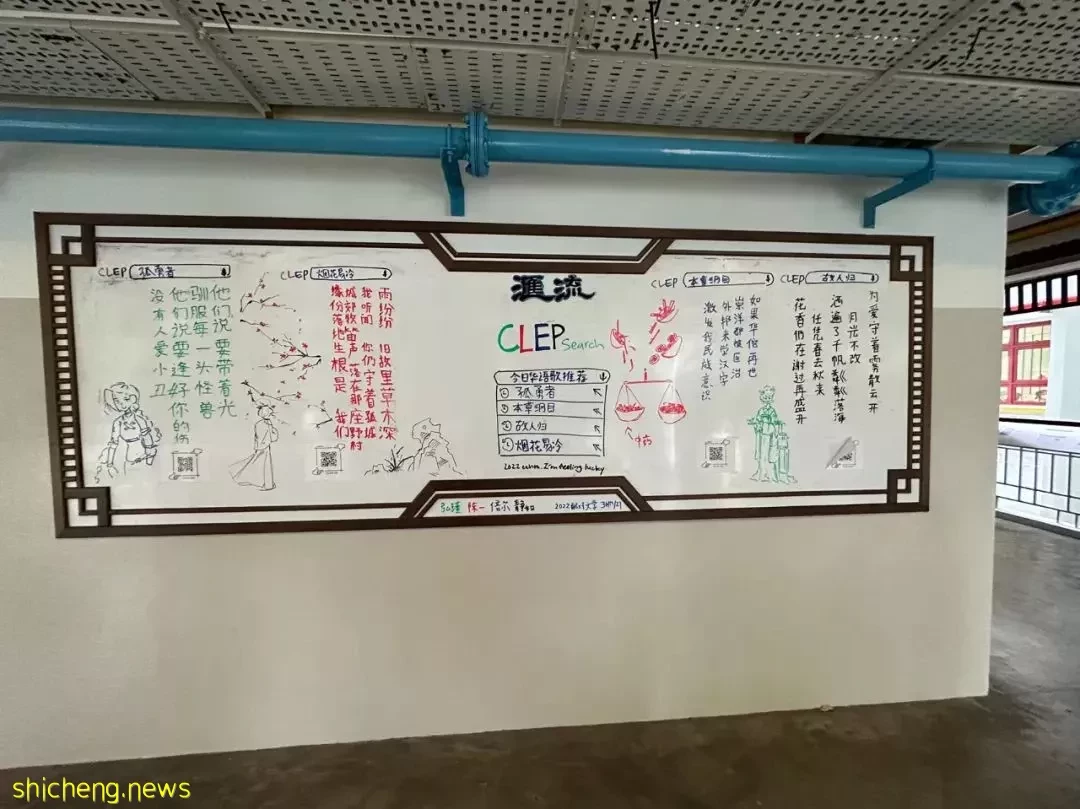 CLEP 孤勇者
他们说 要带着光
驯服每一头怪兽
他们说要缝好你的伤
没有人爱小丑
CLEP 烟花易冷
雨纷纷 旧故里草木深
我听闻 你仍守着孤城
城郊牧笛声 落在那座野村
缘份落地生根是 我们
滙流
CLEP Search
今日华语歌推荐
孤勇者
本草纲目
故人归
烟花易冷
2022 I'm feeling lucky
中药
CLEP 本草纲目
如果华佗再世
崇洋都被医治
外邦来学汉字
激发我民族意识
CLEP 故人归
为爱守着雾散云开
月光不改
洒遍了千帆粼粼落海
任凭春去秋来
花香仍在谢过再盛开
陈一
2022
shicheng.news